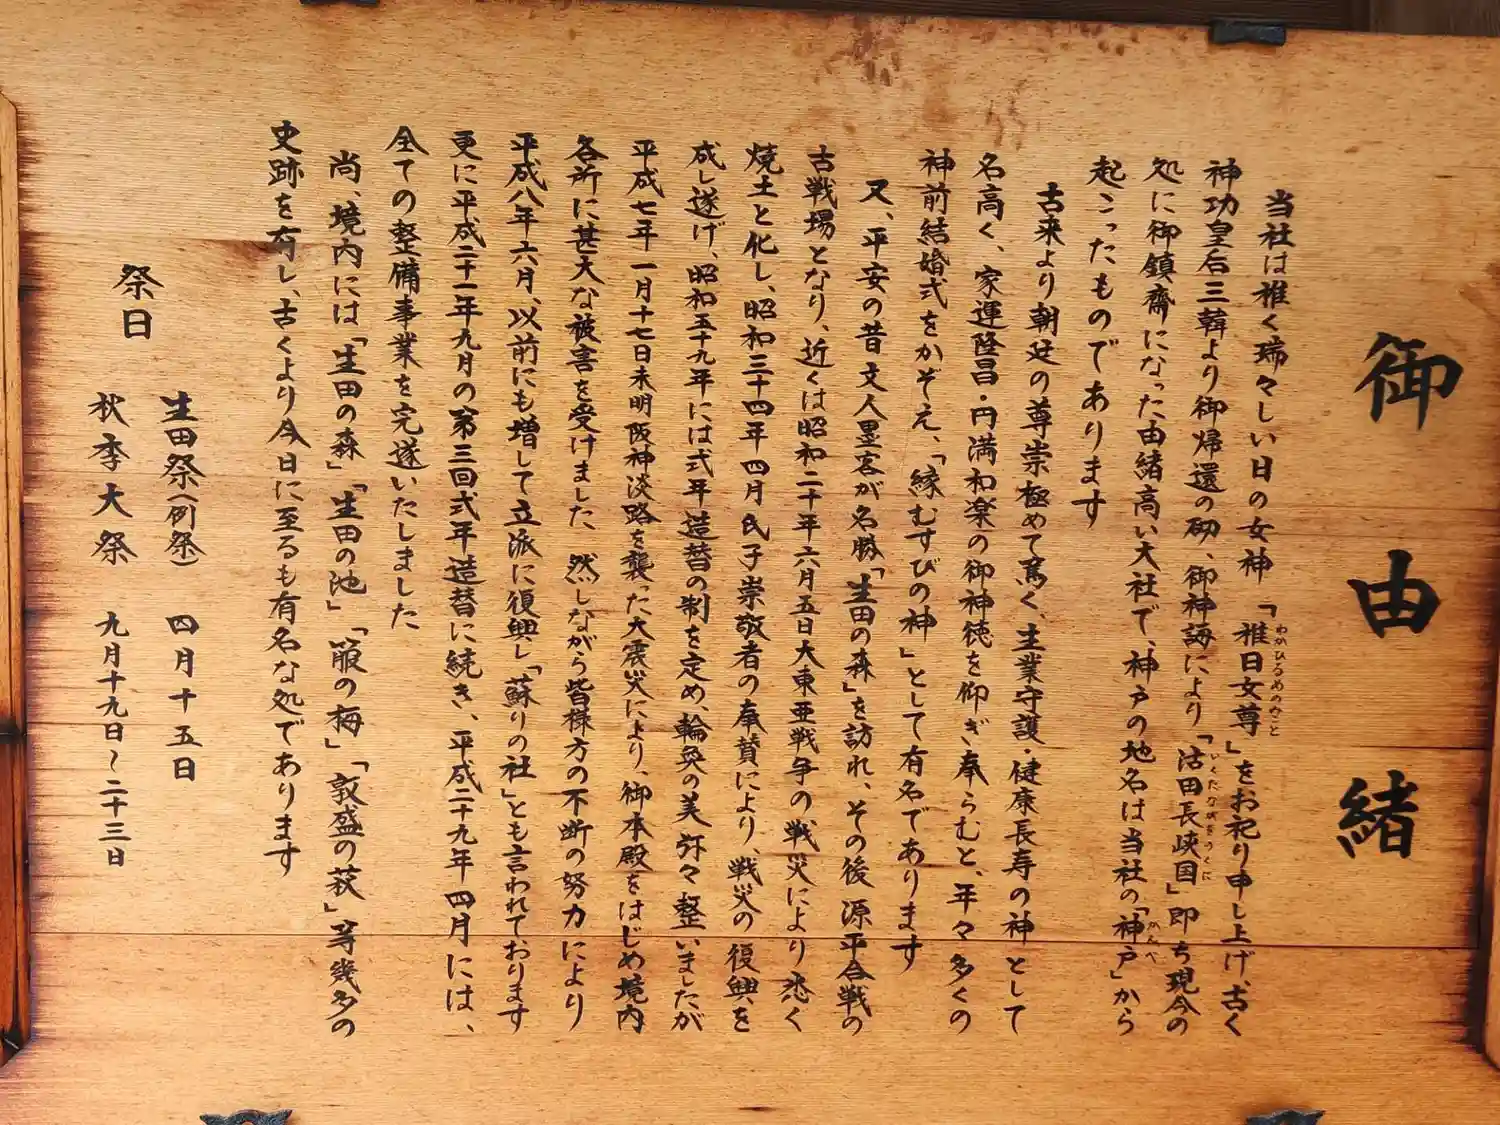 御由緒
当社は稚く瑞々しい日の女神「稚日女尊」をお祀り申し上げ、古く
わかひるめのみこと
神功皇后三韓より御帰還の砌、御神誨により「活田長峡国」即ち現今の
いくたながをのくに
処に御鎮齋になった由緒高い大社で、神戸の地名は当社の「神戸」から
かんべ
起こったものであります
古来より朝廷の尊崇極めて篤く、生業守護・健康長寿の神として
名高く、家運隆昌・円満和楽の御神徳を仰ぎ奉らむと、年々多くの
神前結婚式をかぞえ、「縁むすびの神」として有名であります
又、平安の昔文人墨客が名勝「生田の森」を訪れ、その後源平合戦の
古戦場となり、近くは昭和二十年六月五日大東亜戦争の戦災により悉く
焼土と化し、昭和三十四年四月氏子崇敬者の奉賛により、戦災の復興を
成し遂げ、昭和五十九年には式年造替の制を定め、輪奐の美弥々整いましたが
平成七年一月十七日未明阪神淡路を襲った大震災により、御本殿をはじめ境内
各所に甚大な被害を受けました、然しながら皆様方の不断の努力により
平成八年六月、以前にも増して立派に復興し「蘇りの社」とも言われております
更に平成二十一年九月の第三回式年造替に続き、平成二十九年四月には、
全ての整備事業を完遂いたしました
尚、境内には「生田の森」「生田の池」「箙の梅」「敦盛の萩」等幾多の
史跡を有し、古くより今日に至るも有名な処であります
祭日
生田祭(例祭) 四月十五日
秋季大祭 九月十九日~二十三日